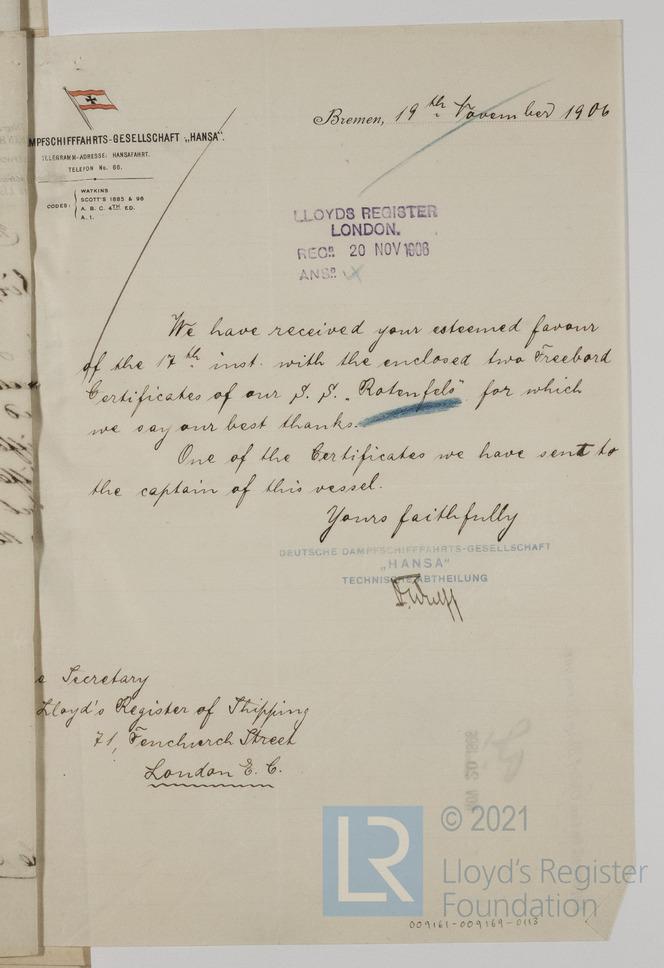 MPFSCHIFFFAHRTS-GESELLSCHAFT „HANSA".
TELEGRAMM-ADRESSE: HANSAFAHRT.
TELEFON No. 66.
CODES:
WATKINS
SCOTT'S 1885 & 96
A. B. C. 4TH ED.
A. I.
Bremen, 19th November 1906
LLOYDS REGISTER
LONDON.
RECD. 20 NOV 1906
ANSD.
We have received your esteemed favour
of the 17th inst. with the enclosed two Freebord
Certificates of our S. S. „Rotenfels" for which
we say our best thanks.
One of the Certificates we have sent to
the captain of this vessel.
Yours faithfully
DEUTSCHE DAMPFSCHIFFFAHRTS-GESELLSCHAFT
„HANSA"
TECHNISCHE ABTHEILUNG
e Secretary
Lloyd's Register of Shipping
71, Fenchurch Street
London E. C.
LR
© 2021
Lloyd's Register
Foundation
009161-009169-0113